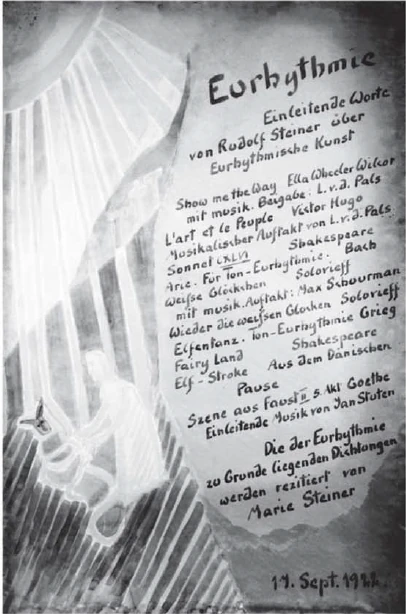 Eurhythmie
Einleitende Worte
von Rudolf Steiner über
Eurhythmische Kunst
Show me the Way Ella Wheeler Wilcox
mit musik. Beigabe: L.v.d. Pals
L'art et le Peuple Victor Hugo
Musikalischer Auftakt von L.v.d. Pals
Sonnet CXLVI Shakespeare
Arie. Für Ton-Eurhythmie. Bach
Weiße Glöckchen Solovieff
mit musik. Auftakt: Max Schuurman
Wieder die weißen Glocken Solovieff
Elfentanz. Ton-Eurhythmie Grieg
Fairy Land Shakespeare
Elf-Stroke Aus dem Dänischen
Pause
Szene aus Faust II 5. Akt Goethe
Einleitende Musik von Jan Stuten
Die der Eurhythmie
zu Grunde liegenden Dichtungen
werden rezitiert von
Marie Steiner
Sept. 1922.